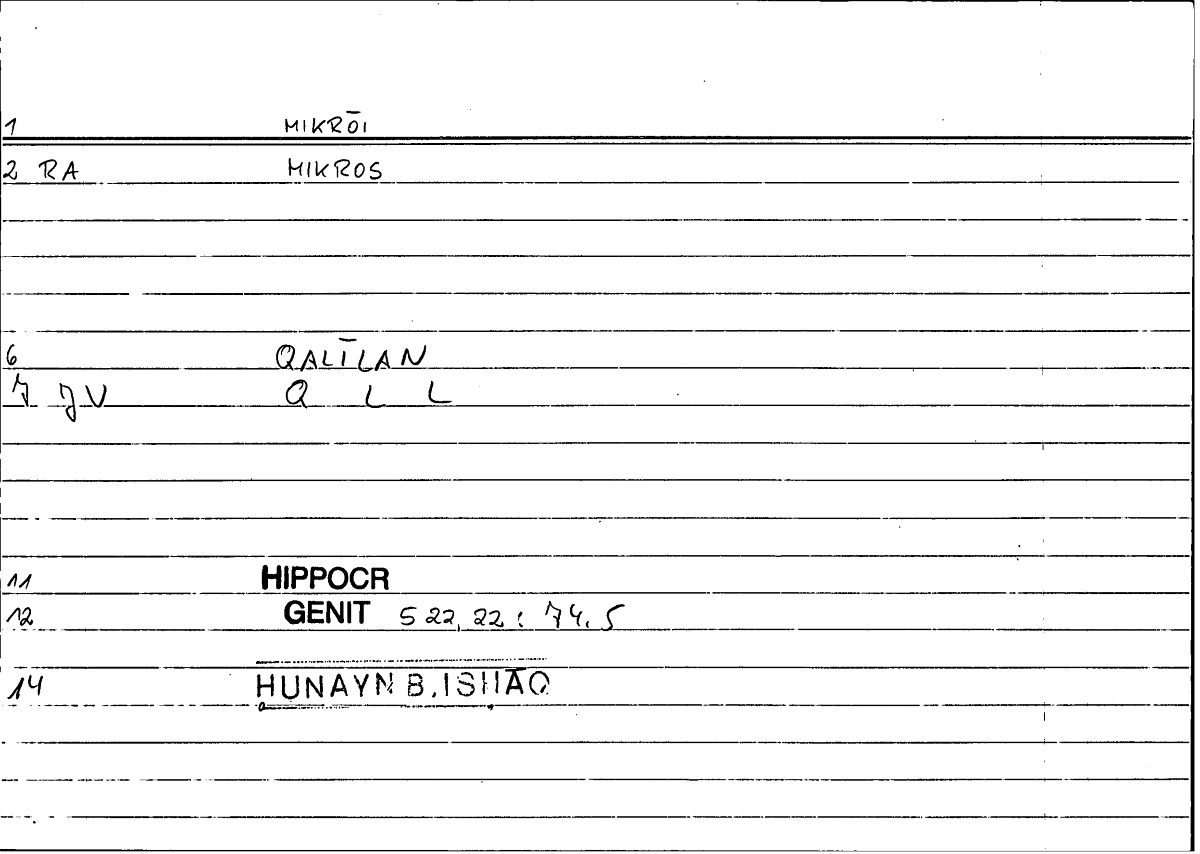 1 MIKRŌI
2 RA MIKROS
6 QALĪLAN
7 JV Q L L
11 HIPPOCR
12 GENIT 522,22 : 74.5
14 HUNAYN B.ISHĀQ